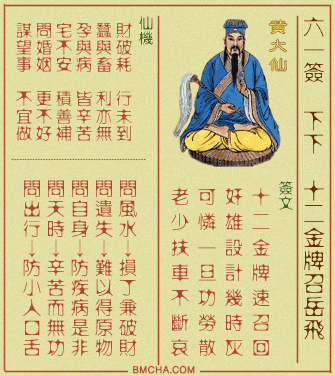 六一簽 下下 十二金牌召岳飛
黄大仙
簽文
十二金牌速召回
奸雄設計幾時灰
可憐一旦功勞散
老少扶車不斷哀
仙機
財破耗 行未到
蠶與畜 利亦無
孕與病 皆辛苦
宅不安 積善補
問婚姻 更不好
謀望事 不宜做
問風水→損丁兼破財
問遺失→難以得原物
問自身→防疾病是非
問天時→辛苦而無功
問出行→防小人口舌
BMCHA.COM